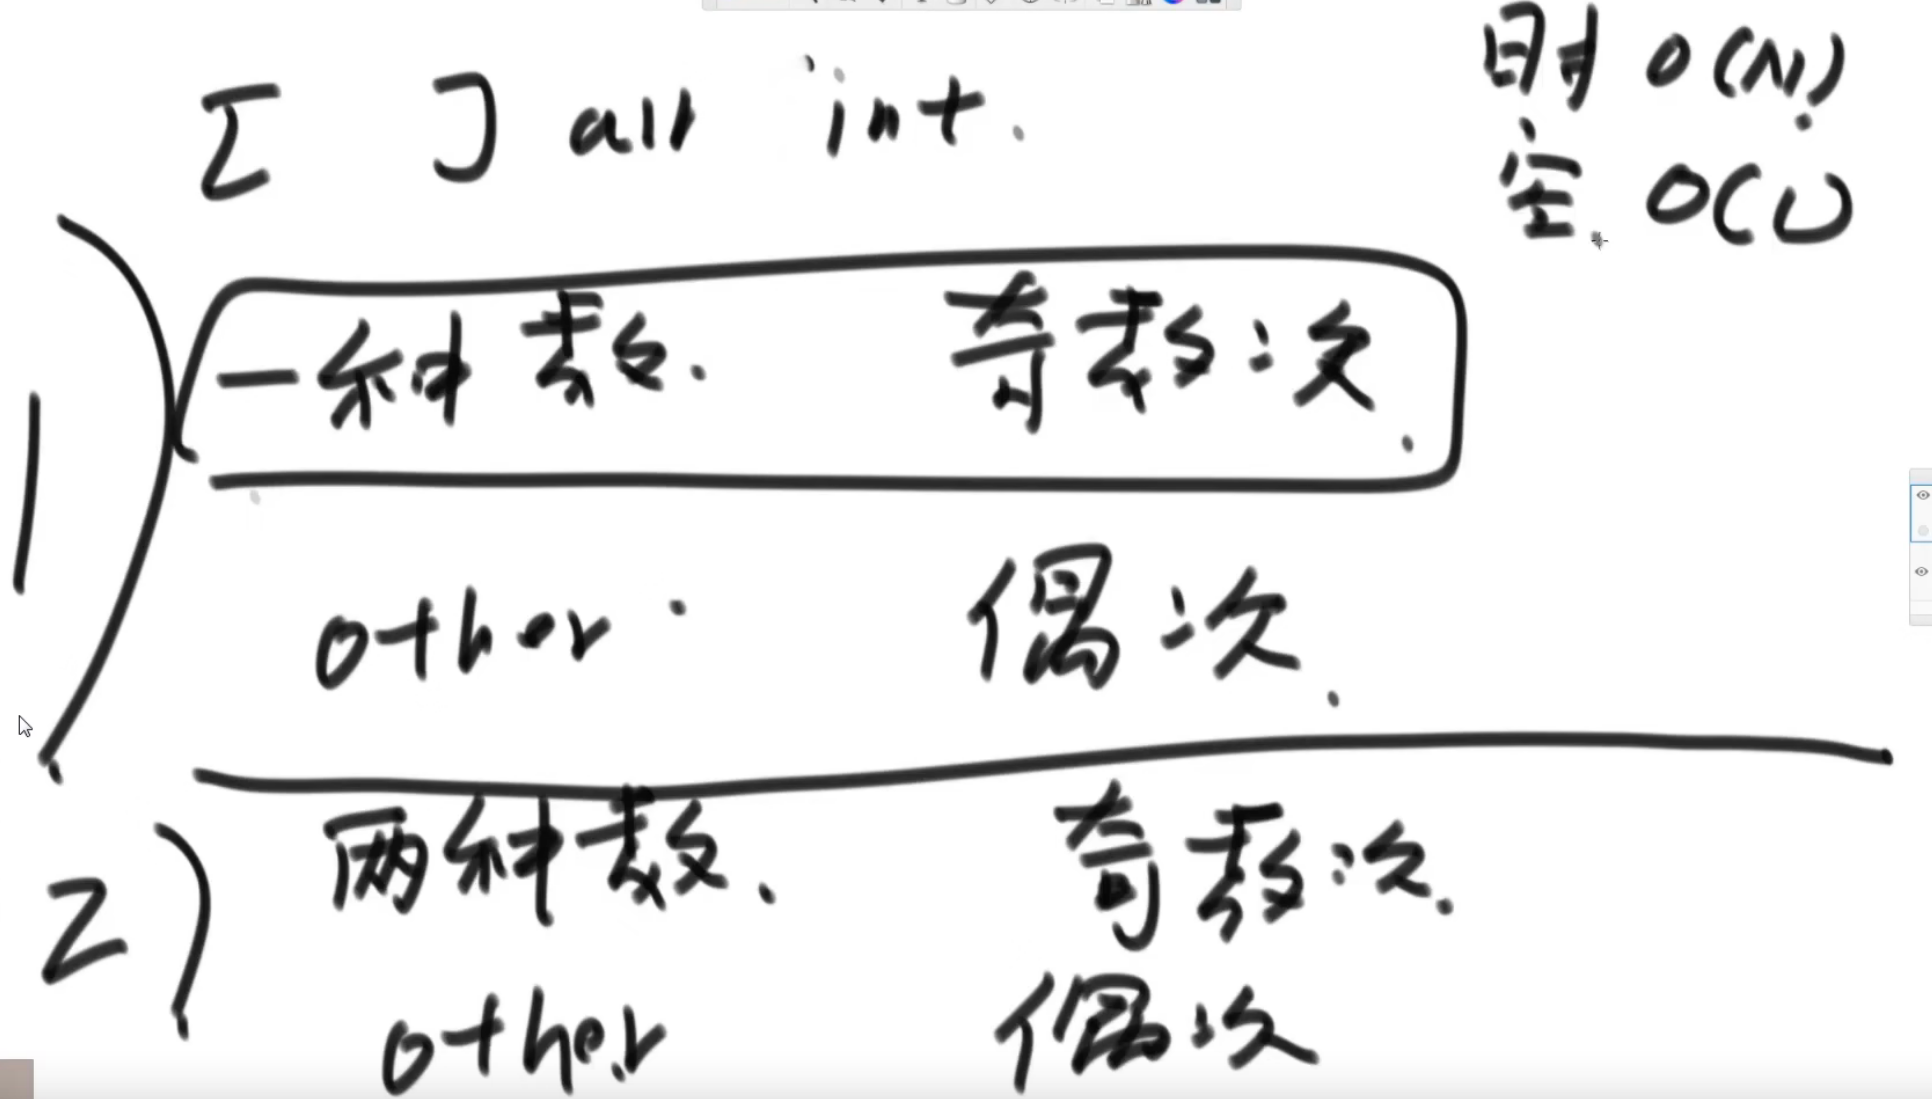 [ ] all int.
时 O(N)
空 O(1)
1)
一种数. 奇数次.
other. 偶次.
2)
两种数. 奇数次.
other 偶次